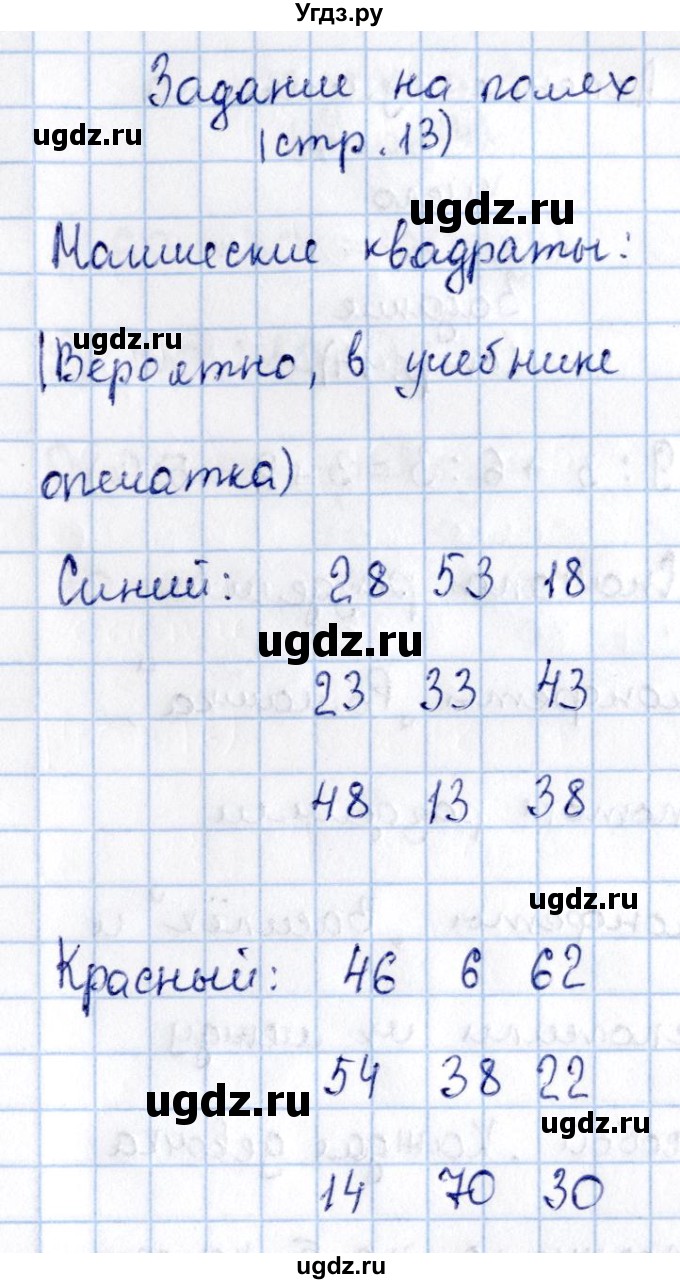 Угдз.ру
Задание на полях
ugdz.ru
(стр. 13)
ugdz.ru
Магические квадраты:
ugdz.ru
(Вероятно, в учебнике
опечатка)
Синий: 28 53 18
ugdz.ru
23 33 43
48 13 38
ugdz.ru
Красный: 46 6 62
54 38 22
ugdz.ru
ugdz.ru
14 70 30
ugdz.ru